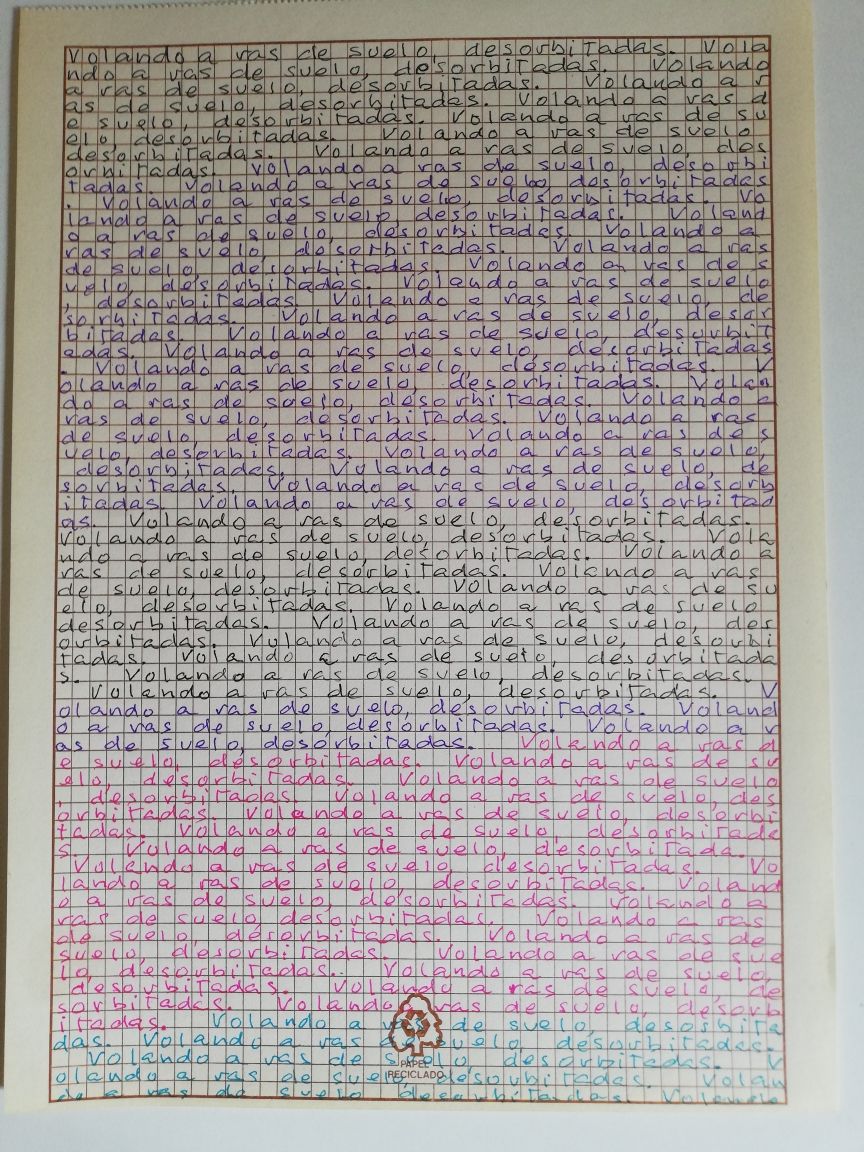 Volando a ras de suelo, desorbitadas. Vola
ndo a ras de suelo, desorbitadas. Volando
a ras de suelo, desorbitadas. Volando a r
as de suelo, desorbitadas. Volando a ras d
e suelo, desorbitadas. Volando a ras de su
elo, desorbitadas. Volando a ras de suelo
desorbitadas. Volando a ras de suelo, des
orbitadas. Volando a ras de suelo, desorbi
tadas. Volando a ras de suelo, desorbitadas
. Volando a ras de suelo, desorbitadas. Vo
lando a ras de suelo, desorbitadas. Voland
o a ras de suelo, desorbitadas. Volando a
ras de suelo, desorbitadas. Volando a ras
de suelo, desorbitadas. Volando a ras de s
uelo, desorbitadas. Volando a ras de suelo
, desorbitadas. Volando a ras de suelo, de
sorbitadas. Volando a ras de suelo, desor
bitadas. Volando a ras de suelo, desorbit
adas. Volando a ras de suelo, desorbitadas
. Volando a ras de suelo, desorbitadas. V
olando a ras de suelo, desorbitadas. Volan
do a ras de suelo, desorbitadas. Volando a
ras de suelo, desorbitadas. Volando a ras
de suelo, desorbitadas. Volando a ras de s
uelo, desorbitadas. Volando a ras de suelo,
desorbitadas. Volando a ras de suelo, de
sorbitadas. Volando a ras de suelo, desorb
itadas. Volando a ras de suelo, desorbitad
as. Volando a ras de suelo, desorbitadas.
Volando a ras de suelo, desorbitadas. Vola
ndo a ras de suelo, desorbitadas. Volando a
ras de suelo, desorbitadas. Volando a ras
de suelo, desorbitadas. Volando a ras de su
elo, desorbitadas. Volando a ras de suelo
desorbitadas. Volando a ras de suelo, des
orbitadas. Volando a ras de suelo, desorbi
tadas. Volando a ras de suelo, desorbitada
s. Volando a ras de suelo, desorbitadas.
Volando a ras de suelo, desorbitadas. V
olando a ras de suelo, desorbitadas. Voland
o a ras de suelo, desorbitadas. Volando a r
as de suelo, desorbitadas. Volando a ras d
e suelo, desorbitadas. Volando a ras de su
elo, desorbitadas. Volando a ras de suelo
, desorbitadas. Volando a ras de suelo, des
orbitadas. Volando a ras de suelo, desorbi
tadas. Volando a ras de suelo, desorbitada
s. Volando a ras de suelo, desorbitada.
Volando a ras de suelo, desorbitadas. Vo
lando a ras de suelo, desorbitadas. Voland
o a ras de suelo, desorbitadas. Volando a
ras de suelo, desorbitadas. Volando a ras
de suelo, desorbitadas. Volando a ras de
suelo, desorbitadas. Volando a ras de sue
lo, desorbitadas. Volando a ras de suelo,
desorbitadas. Volando a ras de suelo, de
sorbitadas. Volando a ras de suelo, desorb
itadas. Volando a ras de suelo, desosbita
das. Volando a ras de suelo, desorbitadas.
Volando a ras de suelo, desorbitadas. V
olando a ras de suelo, desorbitadas. Volan
do a ras de suelo desorbitadas. Volando
PAPEL
RECICLADO